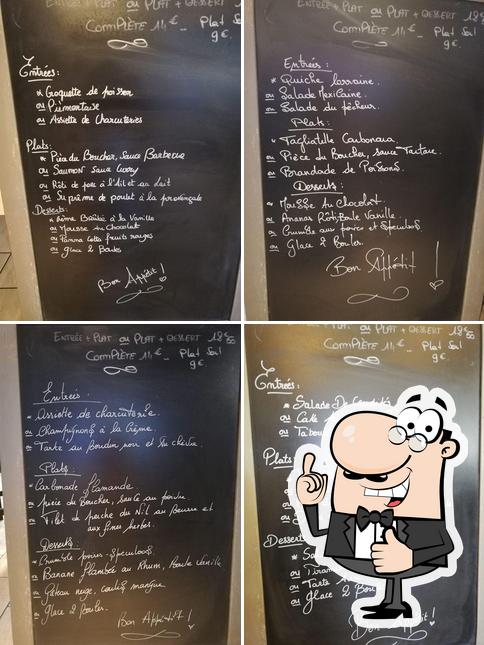 COMPLÈTE 14 € _ Plat Seul
9€.
Entrées:
* Croquette de poisson
ou Piémontaise
ou Assiette de Charcuteries
Plats:
* Pièce du Boucher, Sauce Barbecue
ou Saumon Sauce Curry
ou Rôti de porc à l'Ail et au Lait
ou Suprême de poulet à la provençale
Desserts:
* Crème Brûlée à la Vanille
ou Mousse au Chocolat
ou Panna Cotta fruits rouges
ou glace 2 Boules
Bon Appétit!
ENTRÉE + PLAT ou PLAT + DESSERT
COMPLÈTE 14 € _ Plat Seul
9€.
Entrées:
* Quiche lorraine.
ou Salade Mexicaine.
ou Salade du pêcheur.
Plats:
* Tagliatelle Carbonara.
ou Pièce du Boucher, sauce Tartare.
ou Brandade de Poissons.
Desserts:
* Mousse au Chocolat.
ou Ananas Rôti, Boule Vanille.
ou Crumble aux poires et Spéculoos.
ou Glace 2 Boules.
Bon Appétit!
ENTRÉE + PLAT ou PLAT + DESSERT 12€50
COMPLÈTE 14 € _ Plat Seul
9€.
Entrées:
* Assiette de charcuterie.
ou Champignons à la Crème.
ou Tarte au Boudin noir et au chèvre.
Plats:
* Carbonade flamande.
ou pièce du Boucher, sauce au poivre.
ou Filet de perche du Nil au Beurre et
aux fines herbes.
Desserts:
* Crumble poires-Spéculoos
ou Banane Flambée au Rhum, Boule Vanille
ou Gâteau neige, coulis mangue.
ou glace 2 Boules.
Bon Appétit!
ENTRÉE + PLAT ou PLAT + DESSERT 12€50
COMPLÈTE 14 € _ Plat Seul
9€.
Entrées:
* Salade De
ou
ou
Plats
Desserts
*
ou
ou Tarte
ou Glace 2 Boules
Bon Appétit!